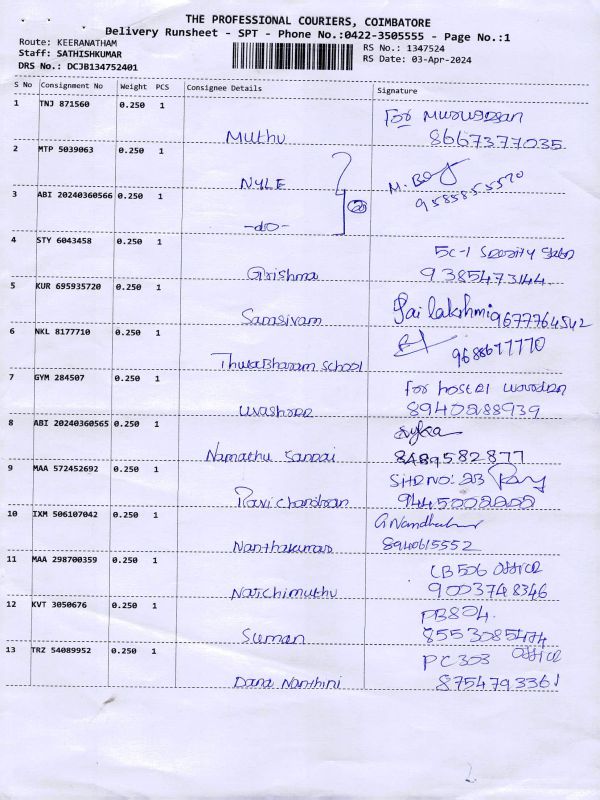 THE PROFESSIONAL COURIERS, COIMBATORE
Delivery Runsheet - SPT - Phone No.:0422-3505555 - Page No.:1
Route: KEERANATHAM
RS No.: 1347524
Staff: SATHISHKUMAR
RS Date: 03-Apr-2024
DRS No.: DCJB134752401
S No Consignment No Weight PCS Consignee Details Signature
1 TNJ 871560 0.250 1
For Murugesan
Muthu 8667377035
2 MTP 5039063 0.250 1
NYLE
3 ABI 20240360566 0.250 1
9585855570
-do- 2
4 STY 6043458 0.250 1
5C-1
Grishma 9385473144
5 KUR 695935720 0.250 1
Sarasivam Jai lakshmi 9677764542
6 NKL 8177710 0.250 1
9688677770
School
7 GYM 284507 0.250 1
For hostel warden
8940288939
8 ABI 20240360565 0.250 1
Namathu Sandai 8489582877
9 MAA 572452692 0.250 1
SHD NO: 2B
Ravichandran
10 IXM 506107042 0.250 1
Nanthakumar 8940615552
11 MAA 298700359 0.250 1
CB506 office
Natchimuthu 9003748346
12 KVT 3050676 0.250 1
PB804.
Suman 8553085474
13 TRZ 54089952 0.250 1
PC303 office
Dana Nanthini 8754793361